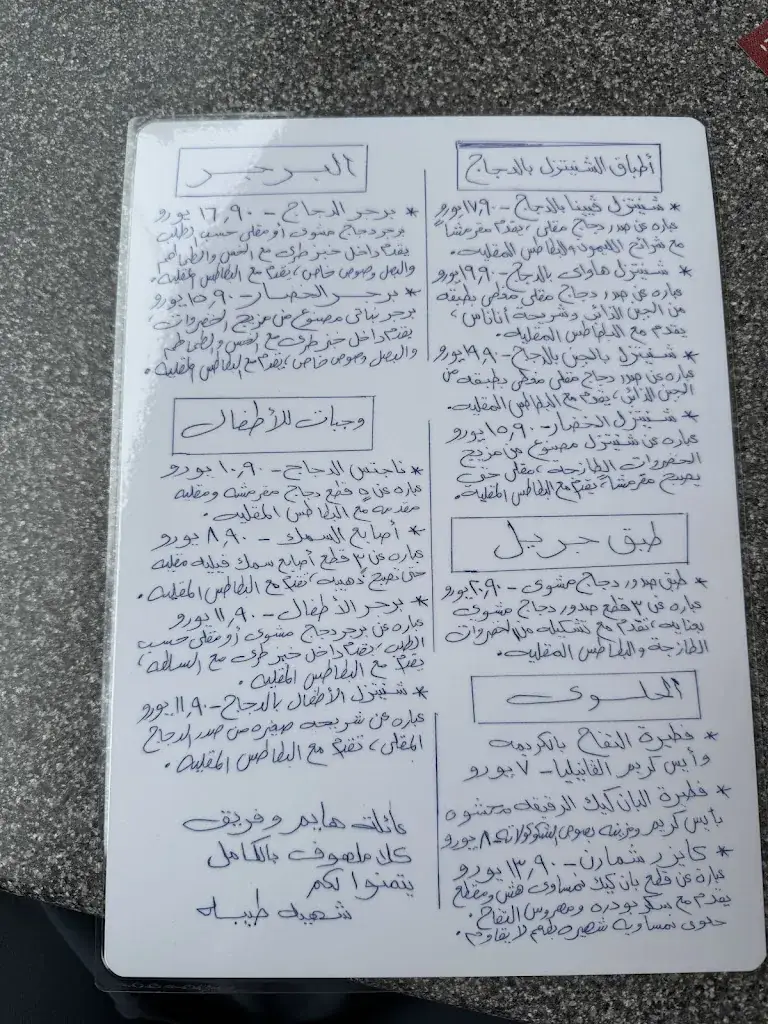 أطباق الشنيتزل بالدجاج
* شنيتزل ڤيينا بالدجاج - ١٧,٩٠ يورو
عباره عن صدر دجاج مقلى، يقدم مقرمشاً
مع شرائح الليمون والبطاطس المقليه.
* شنيتزل هاواى بالدجاج - ١٩,٩٠ يورو
عباره عن صدر دجاج مقلى مغطى بطبقه
من الجبن الذائب وشريحة أناناس،
يقدم مع البطاطس المقليه.
* شنيتزل بالجبن بالدجاج - ١٩,٩٠ يورو
عباره عن صدر دجاج مقلى مغطى بطبقه من
الجبن الذائب، يقدم مع البطاطس المقليه.
* شنيتزل الخضار - ١٥,٩٠ يورو
عباره عن شنيتزل مصنوع من مزيج
الخضروات الطازجه، مقلى حتى
يصبح مقرمشاً، يقدم مع البطاطس المقليه.
طبق جريل
* طبق صدور دجاج مشوى - ٢٠,٩٠ يورو
عباره عن ٣ قطع صدور دجاج مشوى
بعنايه، تقدم مع تشكيله من الخضروات
الطازجة والبطاطس المقليه.
الحلوى
* فطيرة التفاح بالكريمه
وأيس كريم الڤانيليا - ٧ يورو
* فطيرة البان كيك الرقيقه محشوه
بأيس كريم ومزينه بصوص الشوكولاته - ٨ يورو
* كايزر شمارن - ١٣,٩٠ يورو
عبارة عن قطع بان كيك نمساوى هش ومقطع
يقدم مع سكر بودره ومهروس التفاح.
حلوى نمساوية شهيره بطعم لا يقاوم.
البرجر
* برجر الدجاج - ١٦,٩٠ يورو
برجر دجاج مشوى أو مقلى حسب الطلب
يقدم داخل خبز طرى مع الخس والطماطم
والبصل وصوص خاص، يقدم مع البطاطس المقليه.
* برجر الخضار - ١٥,٩٠ يورو
برجر نباتى مصنوع من مزيج الخضروات،
يقدم داخل خبز طرى مع الخس والطماطم
والبصل وصوص خاص، يقدم مع البطاطس المقليه.
وجبات للأطفال
* ناجتس الدجاج - ١٠,٩٠ يورو
عباره عن ٥ قطع دجاج مقرمشه ومقليه
مقدمه مع البطاطس المقليه.
* أصابع السمك - ٨,٩٠ يورو
عباره عن ٣ قطع أصابع سمك فيليه مقليه
حتى تصبح ذهبيه، تقدم مع البطاطس المقليه.
* برجر الأطفال - ١١,٩٠ يورو
عباره عن برجر دجاج مشوى أو مقلى حسب
الطلب، يقدم داخل خبز طرى مع السلطه،
يقدم مع البطاطس المقليه.
* شنيتزل الأطفال بالدجاج - ١١,٩٠ يورو
عباره عن شريحه صغيره من صدر الدجاج
المقلى، تقدم مع البطاطس المقليه.
عائلة هايم وفريق
بالكامل
يتمنوا لكم
شهيه طيبه